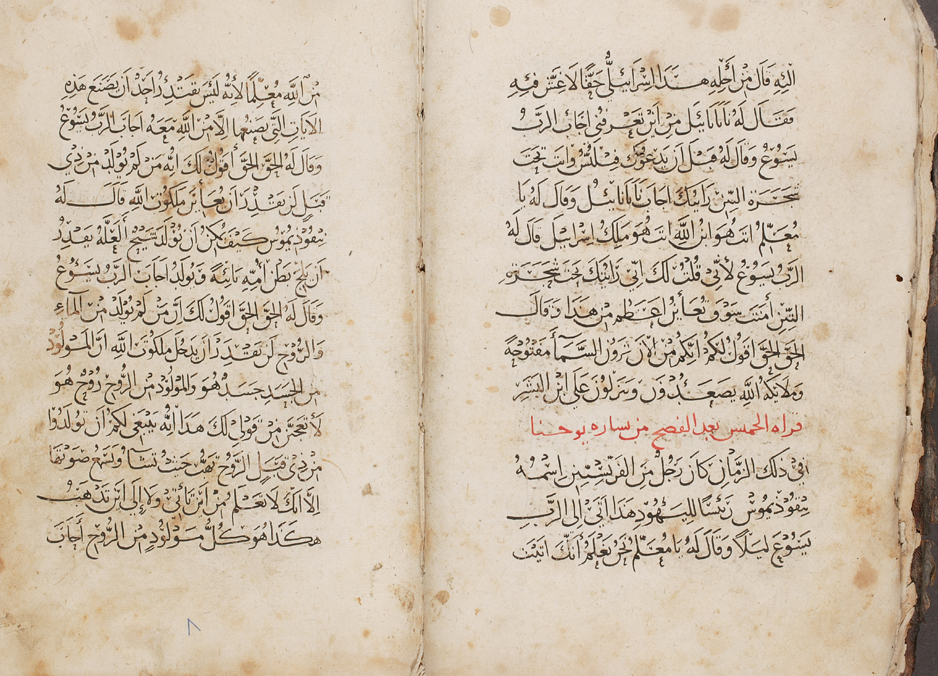 اليه قال من اجله هذا اسرائيلي حقا لا غش فيه
فقال له ناثانائيل من اين تعرفني اجاب الرب
يسوع وقال له قبل ان يدعوك فيلبس وانت تحت
شجرة التين رايتك اجاب ناثانائيل وقال له يا
معلم انت هو ابن الله انت هو ملك اسرائيل قال له
الرب يسوع لأني قلت لك اني رايتك تحت شجرة
التين أمنت سوف تعاين اعظم من هذا وقال
الحق الحق اقول لكم انكم من الان ترون السما مفتوحة
وملائكة الله يصعدون وينزلون على ابن البشر
قراه الخمس بعد الفصح من بشاره يوحنا
في ذلك الزمان كان رجل من الفريسيين اسمه
نيقوديموس رئيسا لليهود هذا اتى الى الرب
يسوع ليلا وقال له يا معلم نحن نعلم أنك اتيت
من الله معلما لأنه ليس يقتدر احد ان يصنع هذه
الايات التي تصنعها الا من الله معه اجاب الرب يسوع
وقال له الحق الحق اقول لك انه من لم يولد من ذي
قبل لن يقتدر ان يعاين ملكوت الله قال له
نيقوديموس كيف يمكن ان يولد شيخ العله يقدر
ان يلج بطن أمه ثانية ويولد اجاب الرب يسوع
وقال له الحق الحق اقول لك ان من لم يولد من الماء
والروح لن يقتدر ان يدخل ملكوت الله ان المولود
من الجسد جسد هو والمولود من الروح روح هو
لا تعجبن من قولي لك هذا انه ينبغي لكم ان تولدوا
من ذي قبل الروح تهب حيث تشا وتسمع صوتها
الا انك لا تعلم من اين تاتي ولا إلى اين تذهب
هكذا هو كل مولود من الروح أجاب
٨